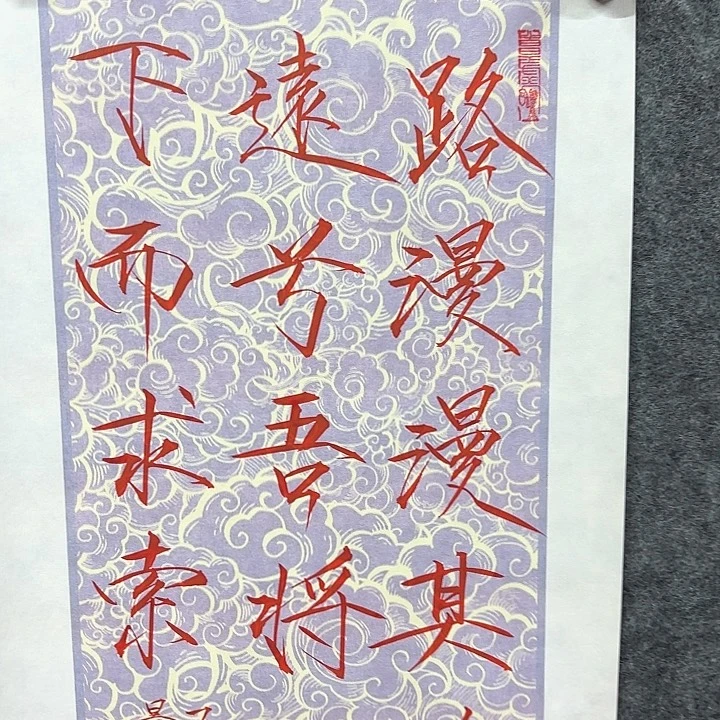 路漫漫其
遠兮吾將
下而求索